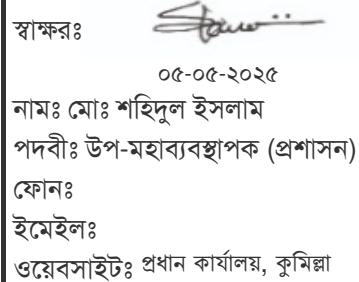 স্বাক্ষরঃ
০৫-০৫-২০২৫
নামঃ মোঃ শহিদুল ইসলাম
পদবীঃ উপ-মহাব্যবস্থাপক (প্রশাসন)
ফোনঃ
ইমেইলঃ
ওয়েবসাইটঃ প্রধান কার্যালয়, কুমিল্লা